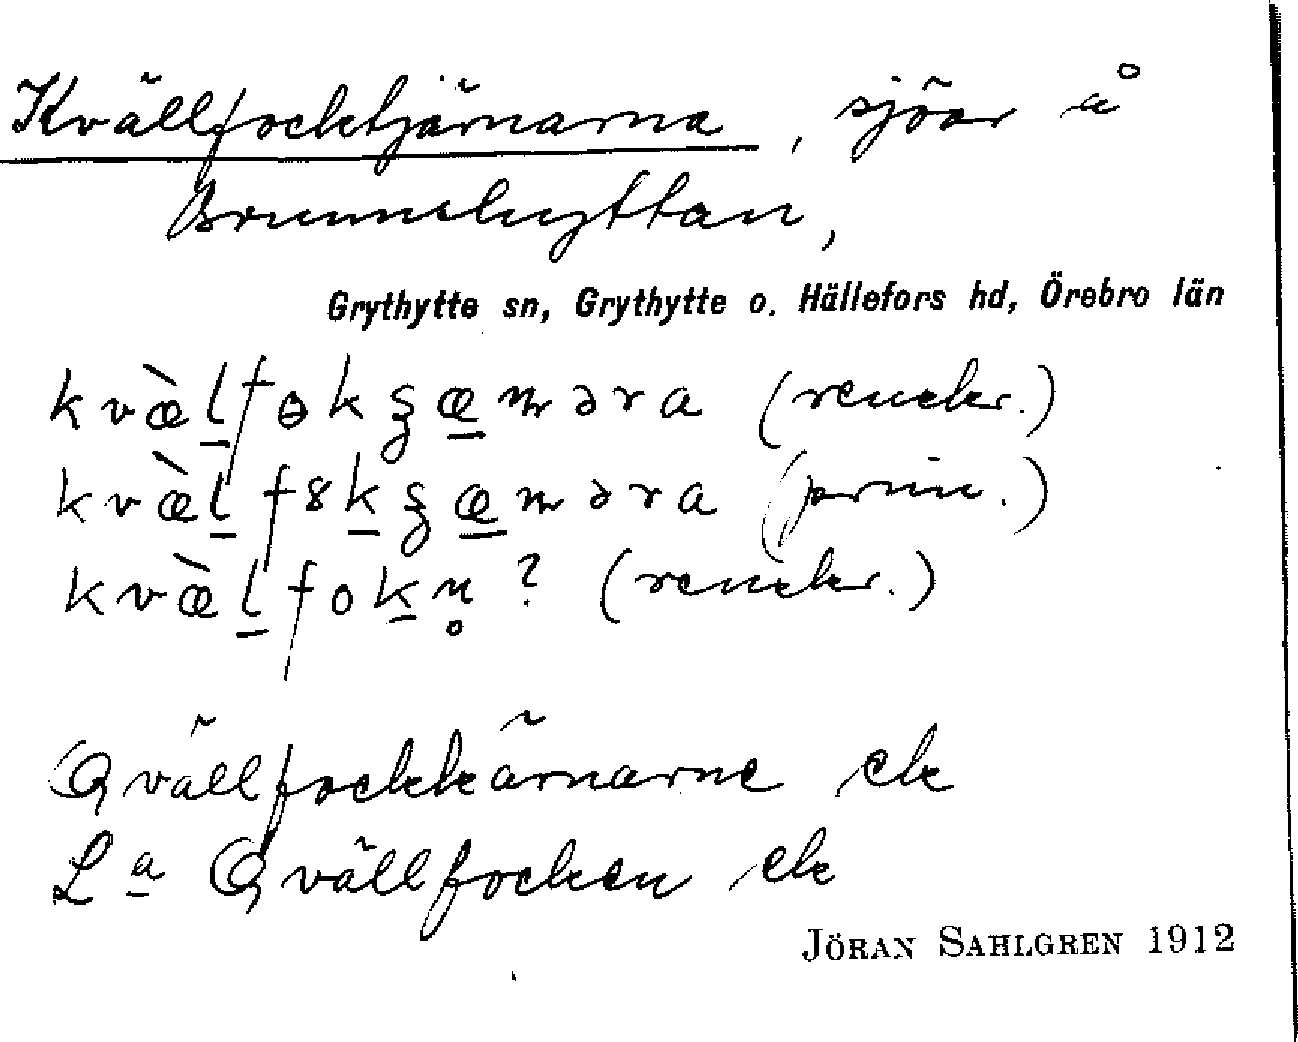 Kvällfocktjärnarna, sjöar å
Brunnshyttan,
Grythytte sn, Grythytte o. Hällefors hd, Örebro län
kvæ̀l̠fɵkʒæ̠ṇəra (renskr.)
kvæ̀l̠f8k̠ʒæ̠ṇəra (prim.)
kvæ̀l̠fok̠n̥? (renskr.)
Qvällfockkärnarne ek
L<sup>a</sup> Qvällfocken ek
JÖRAN SAHLGREN 1912